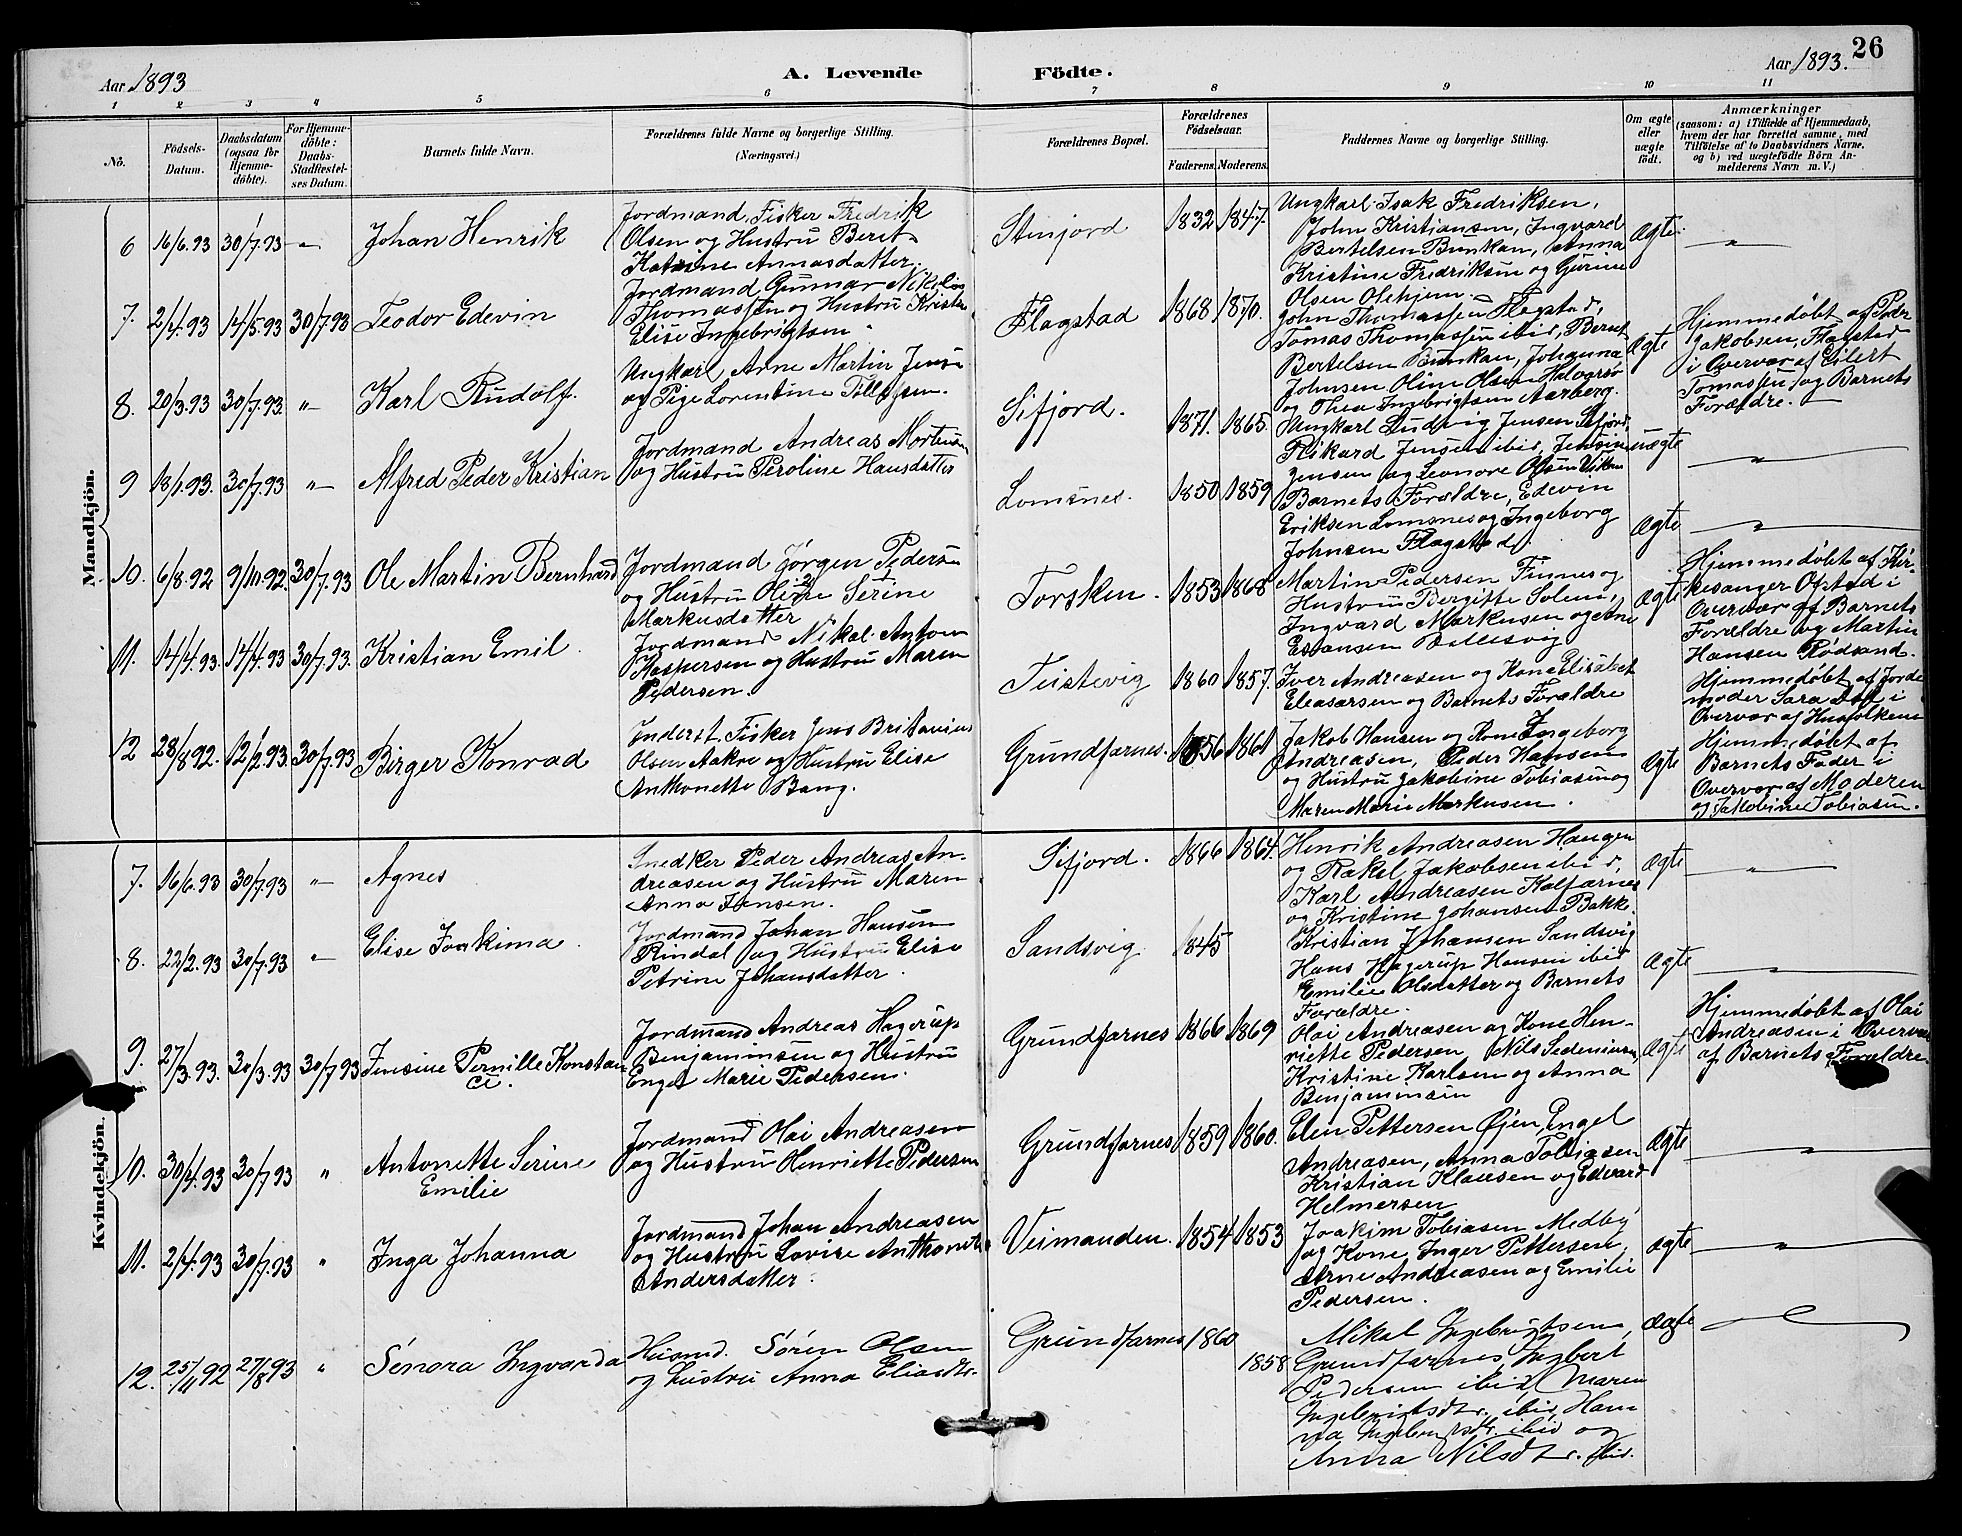 26
Aar 1893
A. Levende Födte.
Aar 1893.
1 2 3 4 5 6 7 8 9 10 11
No.
Födsels-
Datum.
Daabsdatum
(ogsaa for
Hjemme-
döbte).
For Hjemme-
döbte:
Daabs-
Stadfæstel-
ses Datum.
Barnets fulde Navn.
Forældrenes fulde Navne og borgerlige Stilling.
(Næringsvei.)
Forældrenes Bopæl.
Forældrenes
Födselsaar.
Faderens. Moderens.
Faddernes Navne og borgerlige Stilling.
Om ægte
eller
uægte
födt.
Anmærkninger
(saasom: a) i Tilfælde af Hjemmedaab,
hvem der har forrettet samme, med
Tilföielse af to Daabsvidners Navne,
og b) ved uægtefödte Börn An-
melderens Navn m. V.)
Mandkjön.
6 16/6.93 30/7.93 -"- Johan Henrik
Jordmand, Fisker Fredrik
Olsen og Hustru Berit
Katrine Annasdatter.
Stenjord 1832 1847.
Ungkarl Isak Fredriksen,
John Kristiansen, Ingvard
Bertelsen Bunkan, Anna
Kristine Fredriksen og Gurine
Olsen Olehjem.
Ægte. -"-
7. 2/4.93 14/5.93 30/7.93 Teodor Edevin
Jordmand Gunnar Nikolai
Thomassen og Hustru Kristn
Elise Ingebrigtsen
Flagstad 1868 1870.
John Thomassen Flagstad,
Tomas Thomassen ibid, Bernt
Bertelsen Bunkan, Johanna
Johnsen Olim Olsen Halvorsø
og Thea Ingebrigtsen Aarberg.
Ægte
Hjemmedøbt af Peder
Jakobsen, Flagstad
i Overvær af Eilert
Tomassen og Barnets
Forældre.
8. 20/3.93 30/7.93 "- Karl Rudolf.
Ungkarl Arne Martin Jensen
og Pige Lorentine Tollefsen.
Sifjord. 1871. 1865.
Ungkarl Ludvig Jensen Sifjord,
Rikard Jensen ibid, Jensine
Jensen og Leonore Olsen Viken
uægte -"-
9 18/1.93. 30/7.93 "- Alfred Peder Kristian
Jordmand Andreas Mortensen
og Hustru Peroline Hansdatter
Lomsnes. 1850 1859
Barnets Forældre, Edevin
Eriksen Lomsnes og Ingeborg
Johnsen Flagstad
Ægte -"-
10. 6/8.92 9/10.92. 30/7.93 Ole Martin Bernhard
Jordmand Jørgen Pedersen
og Hustru Oline Serine
Markusdatter
Torsken. 1853 1868
Martin Pedersen Finnes og
Hustru Bergitte Solem,
Ingvard Markusen og Ane
Esaiasen Ballesvig
Ægte
Hjemmedøbt af Kir-
kesanger Ofstad i
Overvær af Barnets
Forældre og Martin
Hansen Rødsand.
11. 14/4.93. 14/4.93 30/7.93. Kristian Emil.
Jordmand Nikal. Anton
Kaspersen og Hustru Maren
Pedersen.
Teistevig 1860 1857.
Iver Andreasen og Kone Elisabet
Eleasarsen og Barnets Forældre
Hjemmedøbt af Jorde
moder Sara i
Overvær af Husfolkene
12 28/8 92. 12/2.93 30/7.93 Birger Konrad
Inderst, Fisker Jens Britanius
Olsen Aakre og Hustru Elise
Anthonette Bang.
Grundfarnes. 1856 1861
Jakob Hansen og Kone Ingeborg
Andreasen, Peder Hansen
og Hustru Jakobine Tobiasen og
Maren Marie Markusen.
Ægte
Hjemmedøbt af
Barnets Fader i
Overvær af Moderen
og Jakobine Tobiasen.
Kvindekjön.
7. 16/6.93 30/7.93 "- Agnes
Snedker Peder Andreas An-
dreasen og Hustru Maren
Anna Jensen.
Sifjord. 1866 1864.
Henrik Andreasen Haugen
og Rakel Jakobsen ibid,
Karl Andreasen Kalfarnes
og Kristine Johansen Bakke.
Ægte -"-
8. 22/2.93 30/7.93 "- Elise Joakima.
Jordmand Johan Hansen
Rindal og Hustru Elise
Petrine Johansdatter.
Sandsvig 1845
Kristian Johansen Sandsvig
Hans Hagerup Hansen ibid
Emilie Olsdatter og Barnets
Forældre.
Ægte -"-
9. 27/3.93. 30/3.93 30/7.93 Jensine Pernille Konstan
ce.
Jordmand Andreas Hagerup
Benjaminsen og Hustru
Engel Marie Pedersen.
Grundfarnes 1866 1869
Olai Andreasen og Kone Hen-
riette Pedersen, Nils Sedeniussen
Kristine Karlsen og Anna
Benjaminsen
Ægte
Hjemmedøbt af Olai
Andreasen i Overvær
af Barnets Forældre
10. 30/4.93 30/7.93 " Antonette Serine
Emilie
Jordmand Olai Andreasen
og Hustru Henriette Pedersen
Grundfarnes 1859 1860.
Elen Pettersen Øjen, Engel
Andreasen, Anna Tobiasen
Kristian Klausen og Edvard
Helmersen
Ægte -"-
11. 2/4.93 30/7.93 " Inga Johanna
Jordmand Johan Andreasen
og Hustru Lovise Anthonette
Andersdatter.
Veimanden. 1854 1853
Joakim Tobiasen Medby
og Kone Inger Pettersen,
Arne Andreasen og Emilie
Pedersen.
Ægte -"-
12. 25/11 92 27/8 93 " Sénora Ingvarda
Husmd. Søren Olsen
og Hustru Anna Eliasdtr.
Grundfarnes 1860 1858
Mikal Ingebrigtsen,
Grundfarnes, Ingbert
Pedersen ibid, Maren
Ingebrigtsdtr. ibid, Han
na Ingebrigtsdtr. ibid og
Anna Nilsdtr. ibid.
Ægte